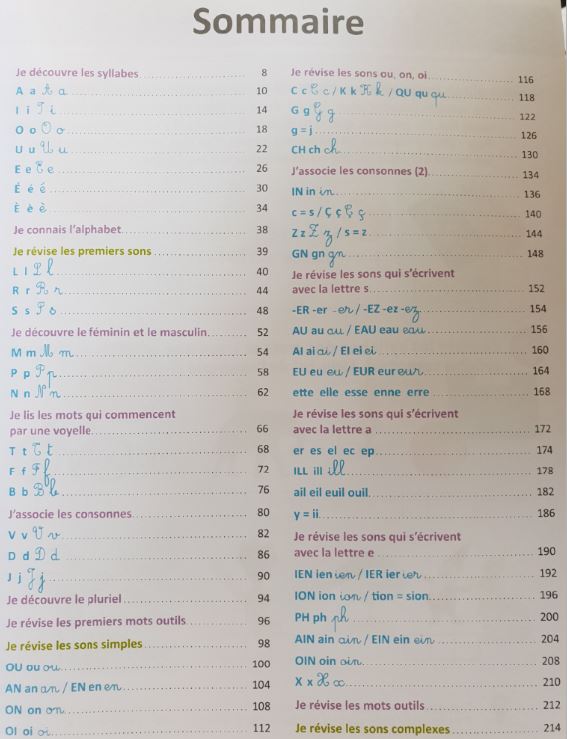 Sommaire
Je découvre les syllabes 8
A a A a 10
I i I i 14
O o O o 18
U u U u 22
E e E e 26
É é é 30
È è è 34
Je connais l'alphabet 38
Je révise les premiers sons 39
L l L l 40
R r R r 44
S s S s 48
Je découvre le féminin et le masculin 52
M m M m 54
P p P p 58
N n N n 62
Je lis les mots qui commencent
par une voyelle 66
T t T t 68
F f F f 72
B b B b 76
J'associe les consonnes 80
V v V v 82
D d D d 86
J j J j 90
Je découvre le pluriel 94
Je révise les premiers mots outils 96
Je révise les sons simples 98
OU ou ou 100
AN an an / EN en en 104
ON on on 108
OI oi oi 112
Je révise les sons ou, on, oi 116
C c C c / K k K k / QU qu qu 118
G g G g 122
g = j 126
CH ch ch 130
J'associe les consonnes (2) 134
IN in in 136
c = s / Ç ç Ç ç 140
Z z Z z / s = z 144
GN gn gn 148
Je révise les sons qui s'écrivent
avec la lettre s 152
-ER -er -er / -EZ -ez -ez 154
AU au au / EAU eau eau 156
AI ai ai / EI ei ei 160
EU eu eu / EUR eur eur 164
ette elle esse enne erre 168
Je révise les sons qui s'écrivent
avec la lettre a 172
er es el ec ep 174
ILL ill ill 178
ail eil euil ouil 182
y = ii 186
Je révise les sons qui s'écrivent
avec la lettre e 190
IEN ien ien / IER ier ier 192
ION ion ion / tion = sion 196
PH ph ph 200
AIN ain ain / EIN ein ein 204
OIN oin oin 208
X x X x 210
Je révise les mots outils 212
Je révise les sons complexes 214